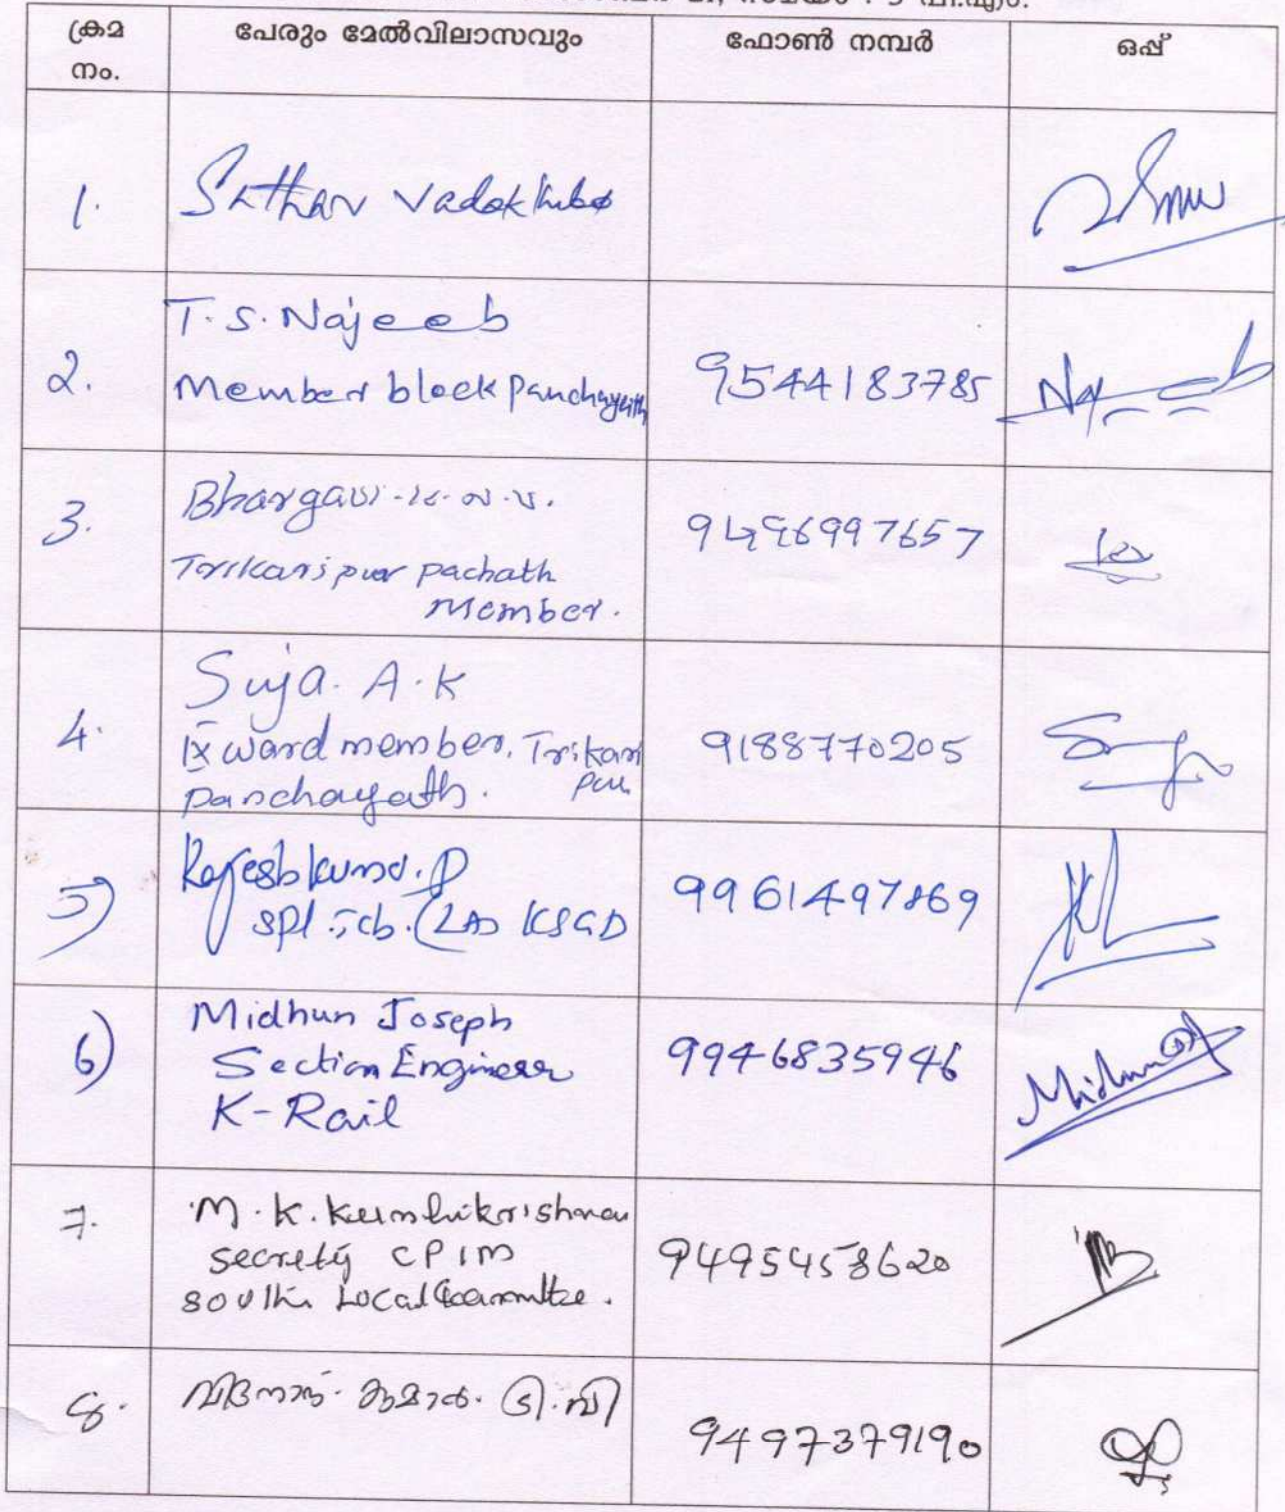 ക്രമ നം.
പേരും മേൽവിലാസവും
ഫോൺ നമ്പർ
ഒപ്പ്
1.
Sathar Vadakkumbo
2.
T.S. Najeeb
Member block panchayath
9544183785
Najeeb
3.
Bhargavi
Trikaripur pachath
Member.
9496997657
4.
Suja. A.K
IX ward member, Trikari
pur
panchayath.
9188770205
5)
Rajeshkumar. P
Spl. Tch. (LA) KSGD
9961497869
6)
Midhun Joseph
Section Engineer
K-Rail
9946835946
Midhun
7.
M.K. Kunhikrishnan
secrety CPIM
South Local Committee.
9495458620
8.
വിനോദ് കുമാർ. ടി.വി
9497379190